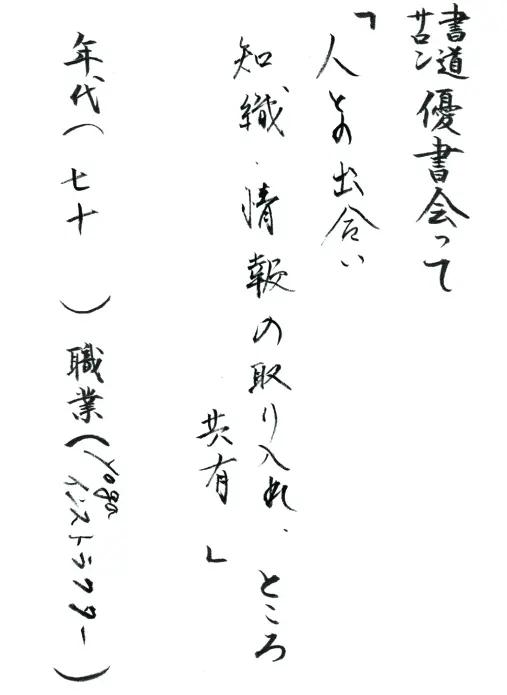 書道サロン優書会って
「人との出合い
知識・情報の取り入れ、ところ
共有」
年代（七十）職業（Yogaインストラクター）